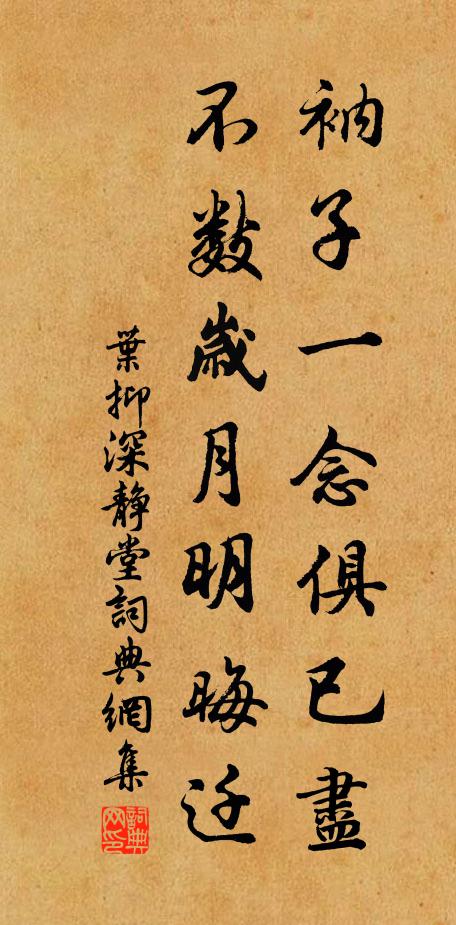 衲子一念俱已盡
不數歲月明晦迁
葉抑深靜堂詞典網集
詞典
网印